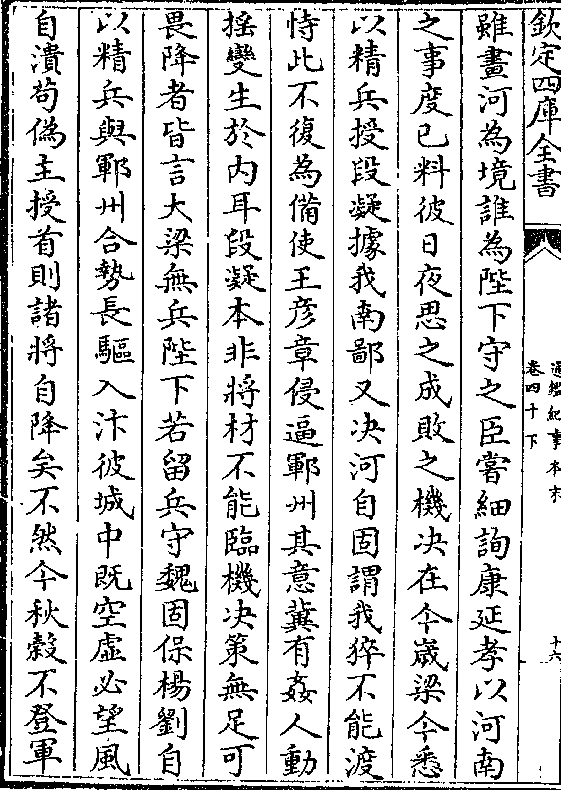 欽定四庫全書
通鑑紀事本末
卷四十下
十六
雖畫河為境誰為陛下守之臣嘗細詢康延孝以河南
之事度已料彼日夜思之成敗之機决在今嵗梁今悉
以精兵授段凝據我南鄙又决河自固謂我猝不能渡
恃此不復為備使王彦章侵逼鄆州其意冀有姦人動
揺變生於内耳段凝本非將材不能臨機决策無足可
畏降者皆言大梁無兵陛下若留兵守魏固保楊劉自
以精兵與鄆州合勢長驅入汴彼城中既空虛必望風
自潰苟偽主授首則諸將自降矣不然今秋穀不登軍